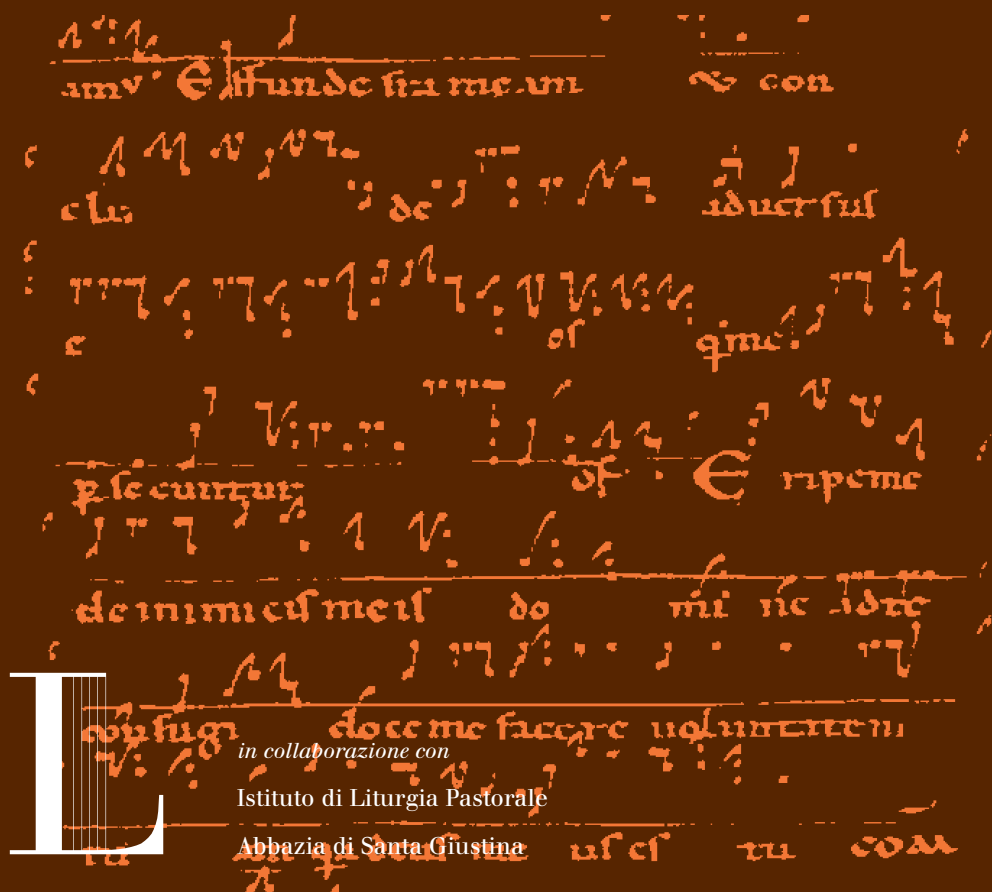 amv E ffunde frameam & con
clu de aduersus
e os qme
psecuntur of E ripeme
deinimicis meis do mi ne adte
confugi doceme facere uoluntatem
in collaborazione con
Istituto di Liturgia Pastorale
L
Abbazia di Santa Giustina
tu deus me us es tu COM